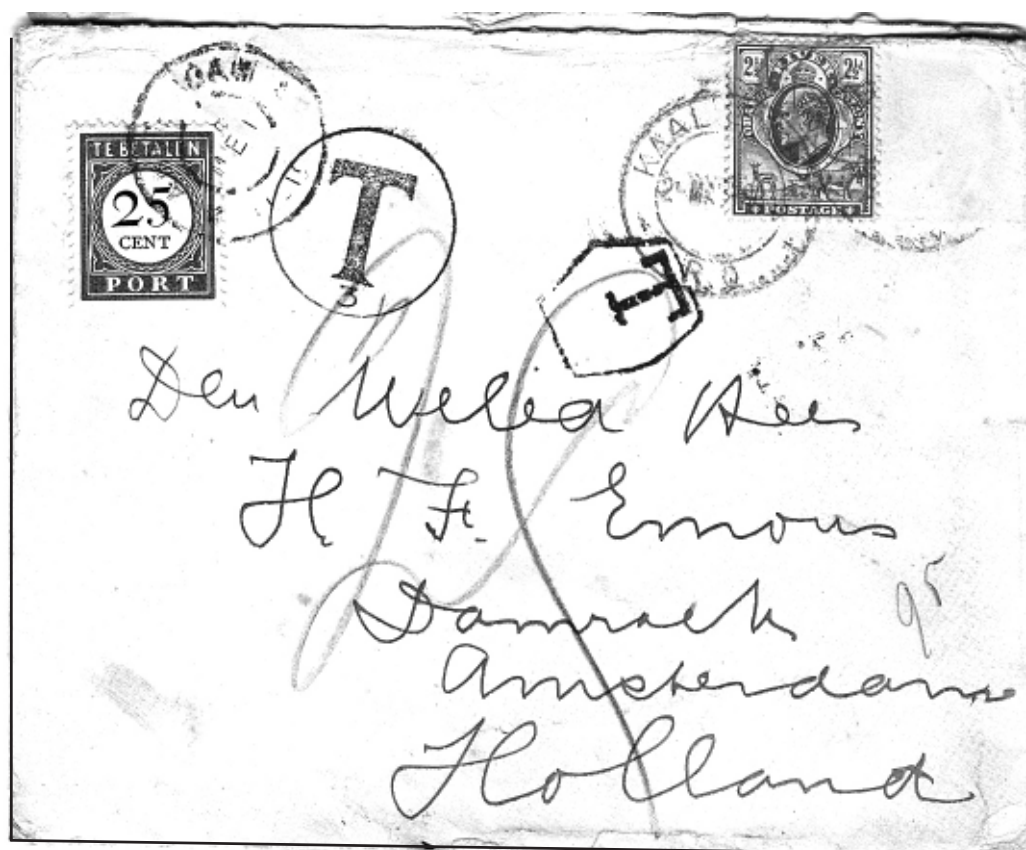 TE BETALEN
25
CENT
PORT
T
3
T
KAAL
2½ 2½
POSTAGE
Den Weled Heer
H. F. Emous
Damrack
Amsterdam
Holland
95